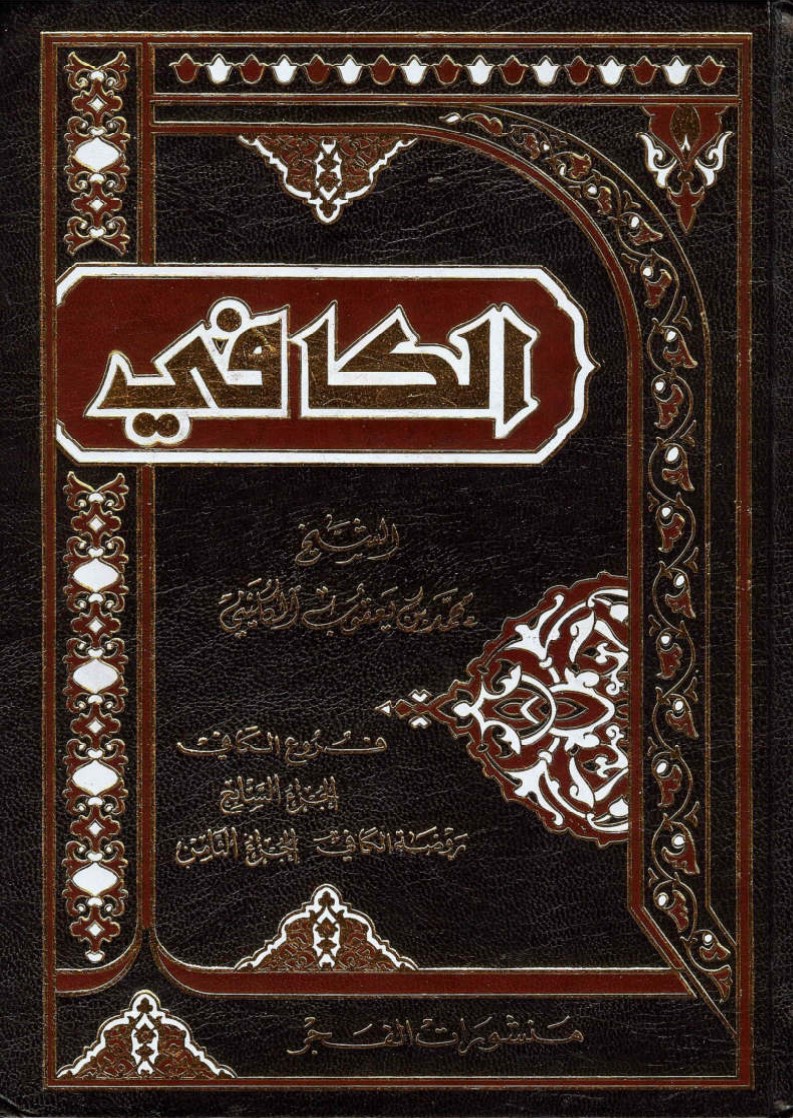 الكافي
الشيخ
محمد بن يعقوب الكليني
فروع الكافي
الجزء السابع
روضة الكافي الجزء الثامن
منشورات الفجر